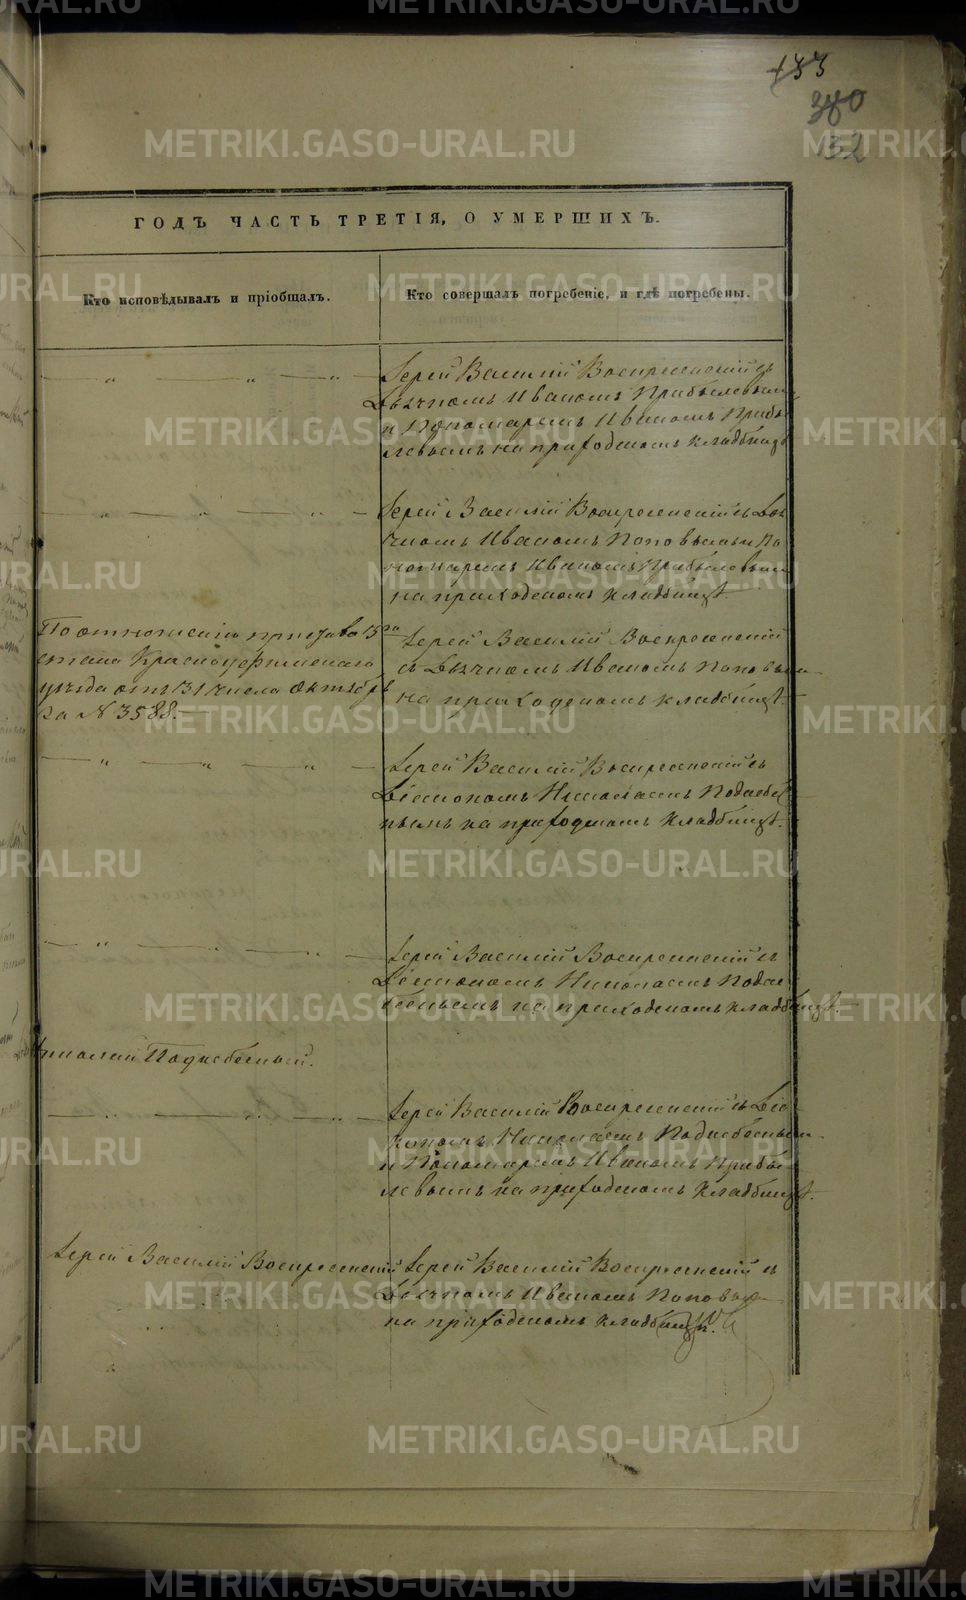 133
380
132
ГОДЪ ЧАСТЬ ТРЕТІЯ, О УМЕРШИХЪ.
Кто исповѣдывалъ и пріобщалъ.
Кто совершалъ погребеніе, и гдѣ погребены.
Іерей Василій Воскресенскій съ
Дьячкомъ Иваномъ Прибылевымъ
и Пономаремъ Иваномъ Прибы-
левымъ на приходскомъ кладбищѣ
Іерей Василій Воскресенскій съ Дья
чкомъ Иваномъ Поповымъ и По
номаремъ Иваномъ Прибылевымъ
на приходскомъ кладбищѣ.
По отношенію пристава 15го
стана Красноуфимскаго
уѣзда отъ 31 числа Октября
за № 3588.
Іерей Василій Воскресенскій
съ Дьячкомъ Иваномъ Поповымъ
на приходскомъ кладбищѣ.
Іерей Василій Воскресенскій съ
Діакономъ Николаемъ Поднебес
нымъ на приходскомъ кладбищѣ.
Іерей Василій Воскресенскій съ
Діакономъ Николаемъ Подне
беснымъ на приходскомъ кладбищѣ.
Николай Поднебесный.
Іерей Василій Воскресенскій съ Діа
кономъ Николаемъ Поднебеснымъ
и Пономаремъ Иваномъ Прибы-
левымъ на приходскомъ кладбищѣ.
Іерей Василій Воскресенскій
Іерей Василій Воскресенскій съ
Дьячкомъ Иваномъ Поповымъ
на приходскомъ кладбищѣ.
METRIKI.GASO-URAL.RU